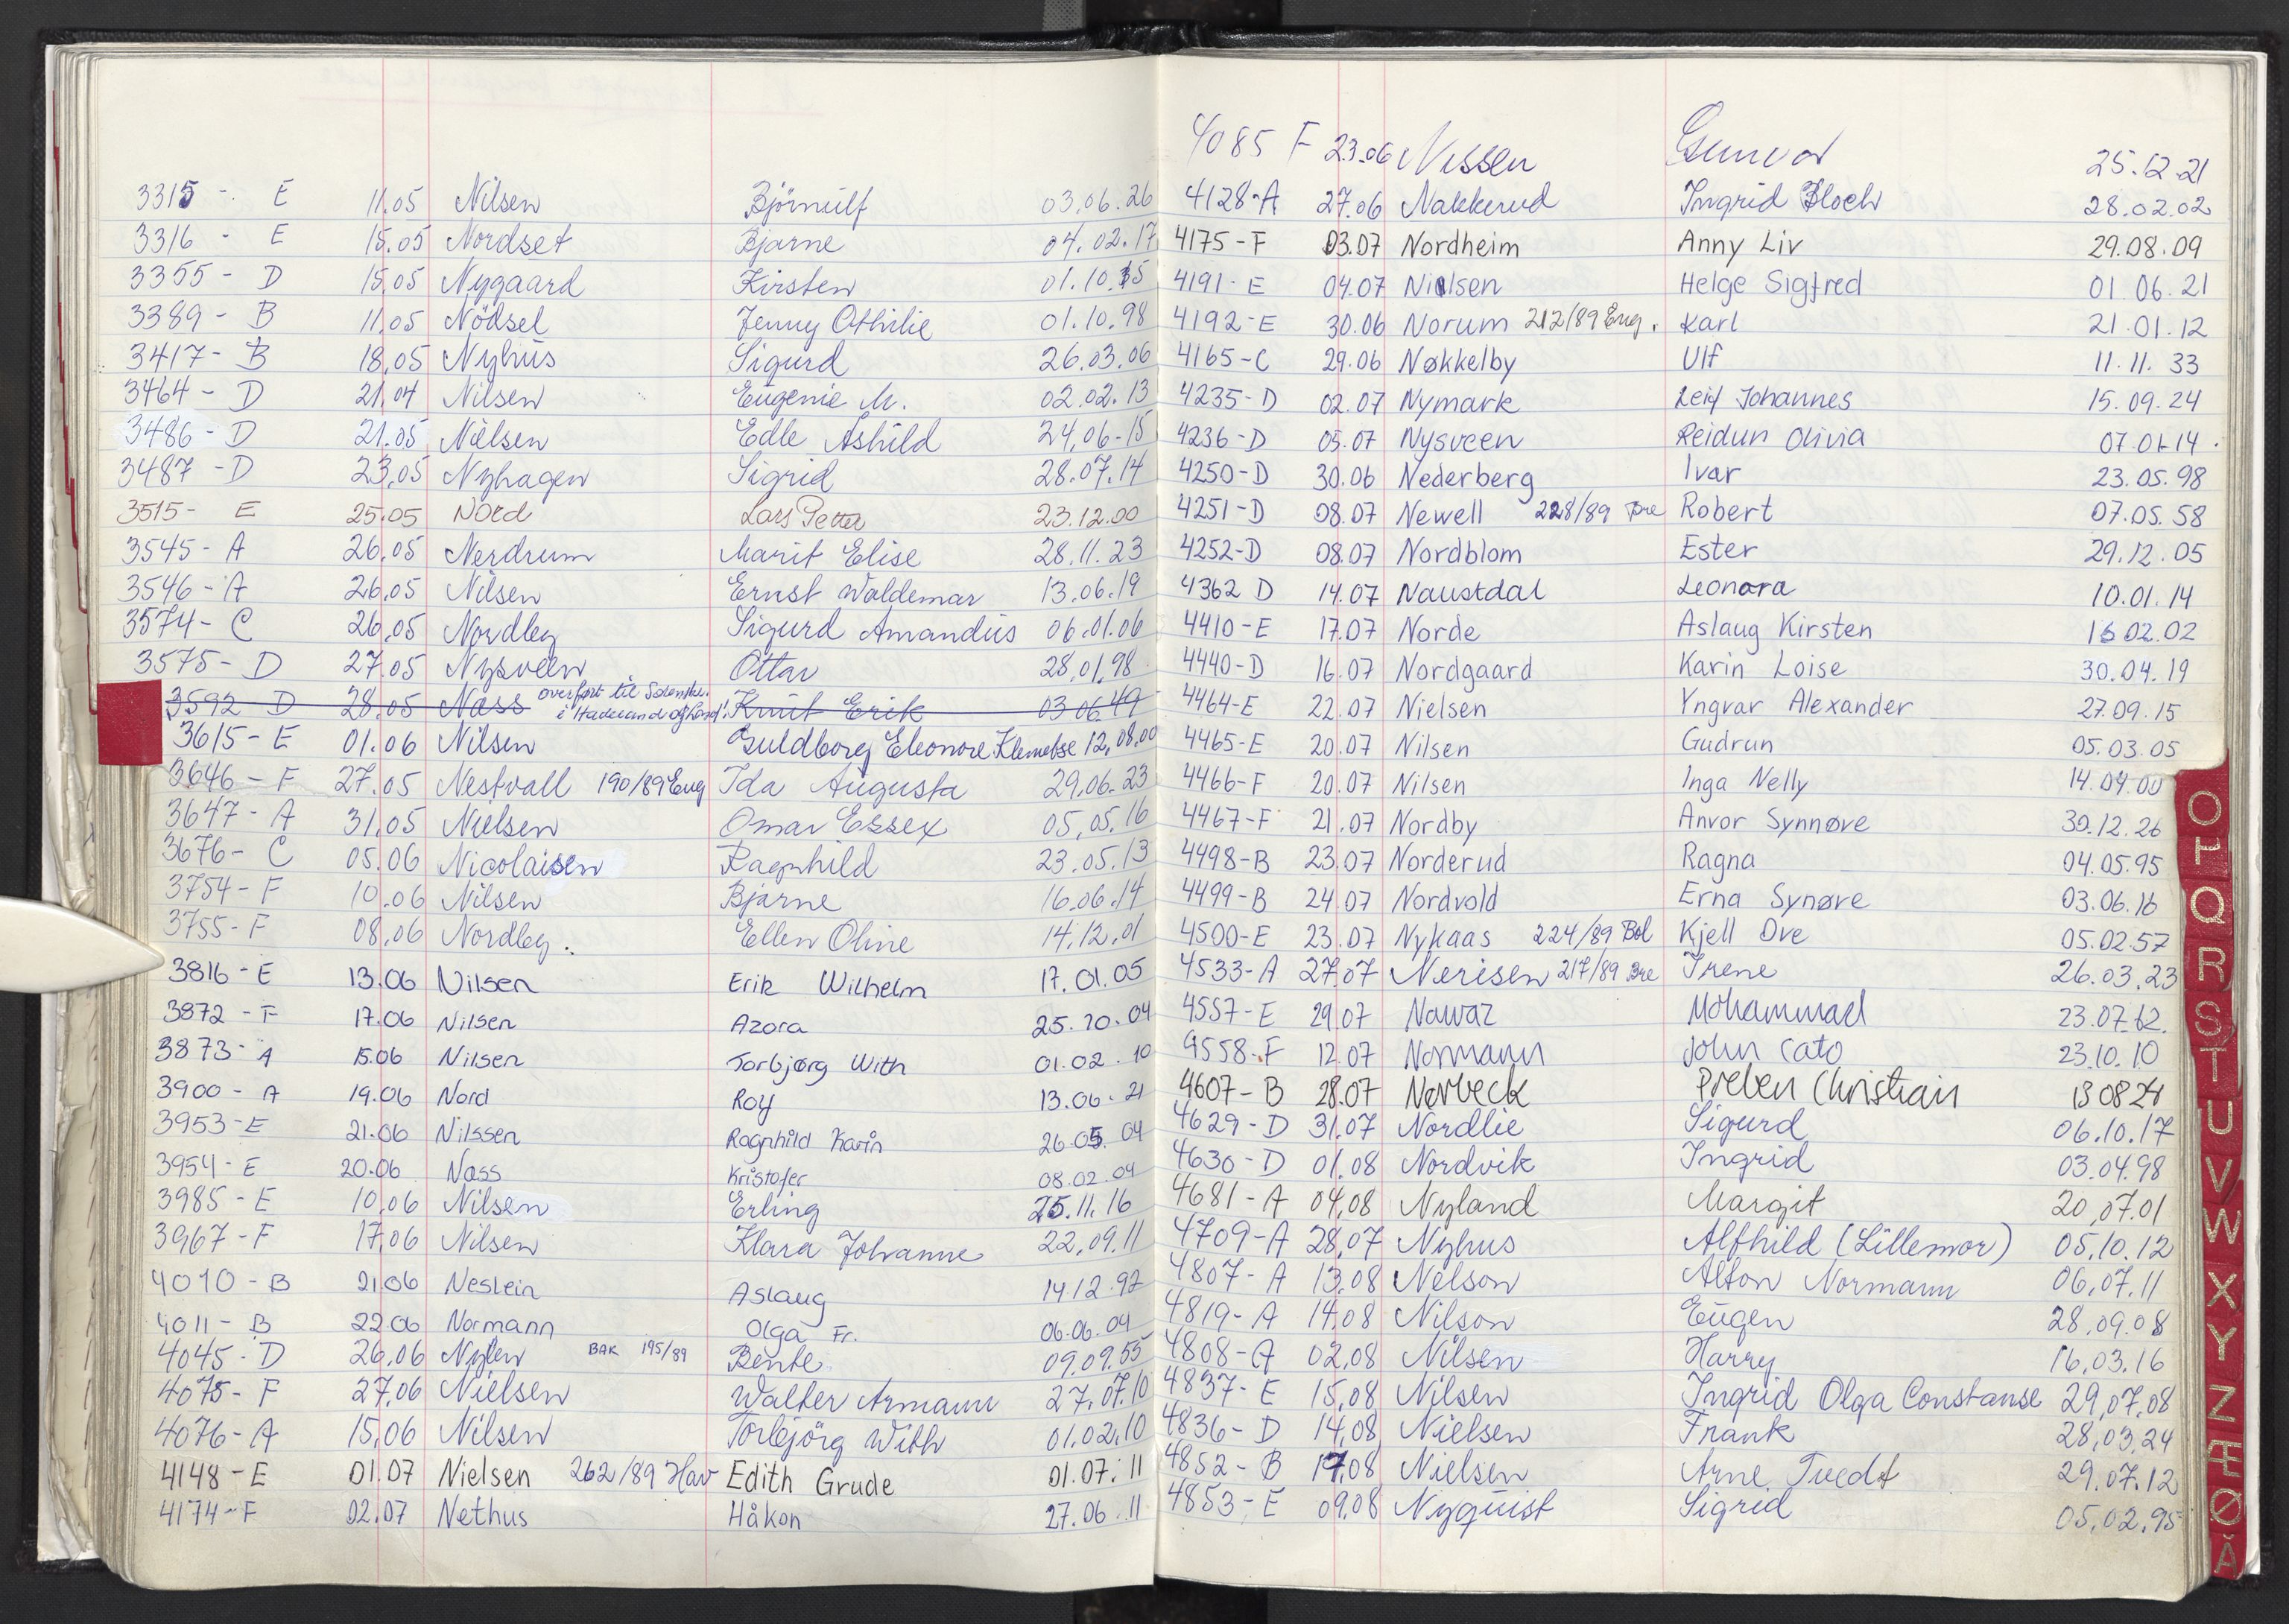 3315 - E 11.05 Nilsen Björnulf 03.06.26
3316 - E 15.05 Nordset Bjarne 04.02.17
3355 - D 15.05 Nygaard Kirsten 01.10.15
3389 - B 11.05 Nödsel Jenny Othilie 01.10.98
3417 - B 18.05 Nyhus Sigurd 26.03.06
3464 - D 21.04 Nilsen Eugenie M. 02.02.13
3486 - D 21.05 Nilsen Edle Ashild 24.06-15
3487 - D 23.05 Nyhagen Sigrid 28.07.14
3515 - E 25.05 Nord Lars Petter 23.12.00
3545 - A 26.05 Nerdrum Marit Elise 28.11.23
3546 - A 26.05 Nilsen Ernst Waldemar 13.06.19
3574 - C 26.05 Nordby Sigurd Amandus 06.01.06
3575 - D 27.05 Nysveen Ottar 28.01.98
3592 D 28.05 Næss overført til i Hadeland Knut Erik 03 06.49
3615 - E 01.06 Nilsen Guldborg Eleonore 12.08.00
3646 - F 27.05 Nestvall 190/89 Eng Ida Augusta 29.06.23
3647 - A 31.05 Nielsen Omar Essex 05.05.16
3676 - C 05.06 Nicolaisen Ragnhild 23.05.13
3754 - F 10.06 Nilsen Bjarne 16.06.14
3755 - F 08.06 Nordby. Ellen Oline 14.12.01
3816 - E 13.06 Nilsen Erik Wilhelm 17.01.05
3872 - F 17.06 Nilsen Azora 25.10.04
3873 - A 15.06 Nilsen Torbjørg With 01.02.10
3900 - A 19.06 Nord Roy 13.06.21
3953 - E 21.06 Nilssen Ragnhild Karin 26.05.04
3954 - E 20.06 Næss Kristofer 08.02.04
3985 - E 10.06 Nilsen Erling 25.11.16
3967 - F 17.06 Nilsen Klara Johanne 22.09.11
4010 - B 21.06 Neslein Aslaug 14.12.97
4011 - B 22.06 Normann Olga Fr. 06.06.04
4045 - D 26.06 Nylen BAK 195/89 Bente 09.09.55
4075 - F 27.06 Nielsen Walter Armann 27.07.10
4076 - A 15.06 Nilsen Torbjörg With 01.02.10
4148 - E 01.07 Nielsen 262/89 Hav Edith Grude 01.07.11
4174 - F 02.07 Nethus Håkon 27.06.11
4085 F 23.06 Nissen Gunvor 25.12.21
4128-A 27.06 Nakkerud Ingrid Bloch 28.02.02
4175-F 03.07 Nordheim Anny Liv 29.08.09
4191-E 04.07 Nilsen Helge Sigfred 01.06.21
4192-E 30.06 Norum 212/89 Eng. Karl 21.01.12
4165-C 29.06 Nøkkelby Ulf 11.11.33
4235-D 02.07 Nymark Leif Johannes 15.09.24
4236-D 05.07 Nysveen Reidun Olivia 07.01.14.
4250-D 30.06 Nederberg Ivar 23.05.98
4251-D 08.07 Newell 228/89 Bre Robert 07.05.58
4252-D 08.07 Nordblom Ester 29.12.05
4362 D 14.07 Naustdal Leonora 10.01.14
4410-E 17.07 Norde Aslaug Kirsten 16 02.02
4440-D 16.07 Nordgaard Karin Loise 30.04.19
4464-E 22.07 Nielsen Yngvar Alexander 27.09.15
4465-E 20.07 Nilsen Gudrun 05.03.05
4466-F 20.07 Nilsen Inga Nelly 14.04.00
4467-F 21.07 Nordby Anvor Synnøve 30.12.26
4498-B 23.07 Norderud Ragna 04.05.95
4499-B 24.07 Nordvold Erna Synøve 03.06.16
4500-E 23.07 Nykaas 224/89 Bol Kjell Ove 05.02.57
4533-A 27.07 Nerisen 217/89 Bre Irene 26.03.23
4557-E 29.07 Nawaz Mohammad 23.07.62.
4558-F 12.07 Normann John Cato 23.10.10
4607-B 28.07 Nørbeck Preben Christian 13 08 24
4629-D 31.07 Nordlie Sigurd 06.10.17
4630-D 01.08 Nordvik Ingrid 03.04.98
4681-A 04.08 Nyland Margit 20.07.01
4709-A 28.07 Nyhus Alfhild (Lillemor) 05.10.12
4807-A 13.08 Nelson Alton Normann 06.07.11
4819-A 14.08 Nilson Eugen 28.09.08
4808-A 02.08 Nilsen Harry 16.03.16
4837-E 15.08 Nilsen Ingrid Olga Constanse 29.07.08
4836-D 14.08 Nielsen Frank 28.03.24
4852-B 17.08 Nielsen Arne Tvedt 29.07.12
4853-E 09.08 Nyquist Sigrid 05.02.95
O
P
Q
R
S
T
U
V
W
X
Y
Z
Æ
Ø
Å